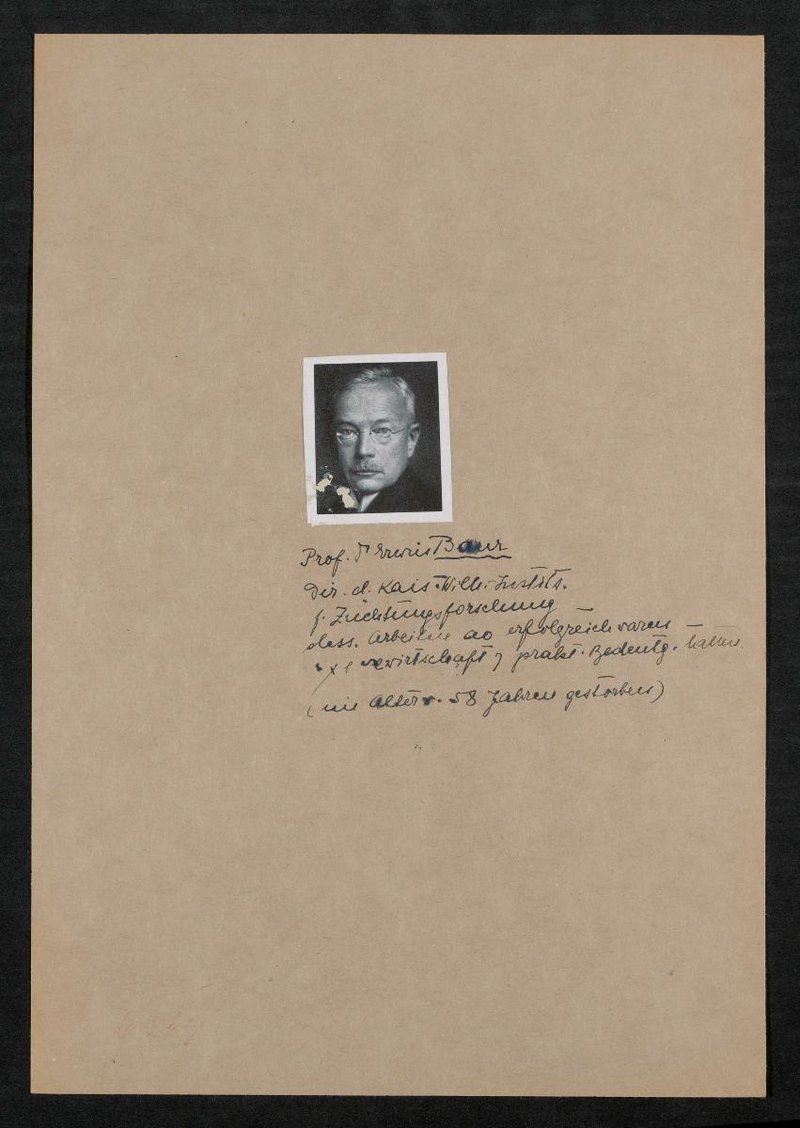 Prof. Dr Erwin Baur
Dir. d. Kais. Wilh. Instits.
f. Züchtungsforschung
dess. Arbeiten so erfolgreich waren
wirtschaft prakt. Bedeutg. hatten
(im Alter v. 58 Jahren gestorben)